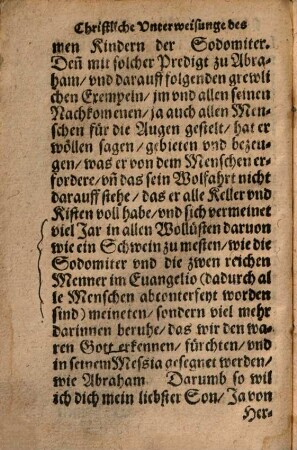 Christliche Vnterweisunge des
men Kindern der Sodomiter.
Deñ mit solcher Predigt zu Abra-
ham/vnd darauff folgenden grewli
chen Exempeln/jm vnd allen seinen
Nachkomenen/ja auch allen Men-
schen für die Augen gestelt/hat er
wöllen sagen/gebieten vnd bezeu-
gen/was er von dem Menschen er-
fordere/vñ das sein Wolfahrt nicht
darauff stehe/das er alle Keller vnd
Kisten voll habe/vnd sich vermeinet
viel Jar in allen Wollüsten daruon
wie ein Schwein zu mesten/wie die
Sodomiter vnd die zwen reichen
Menner im Euangelio (dadurch al
le Menschen abconterfeyt worden
sind) meineten/sondern viel mehr
darinnen beruhe/das wir den wa-
ren Gott erkennen/fürchten/vnd
in seinem Messia gesegnet werden/
wie Abraham Darumb so wil
ich dich mein liebster Son/Ja von
Her-